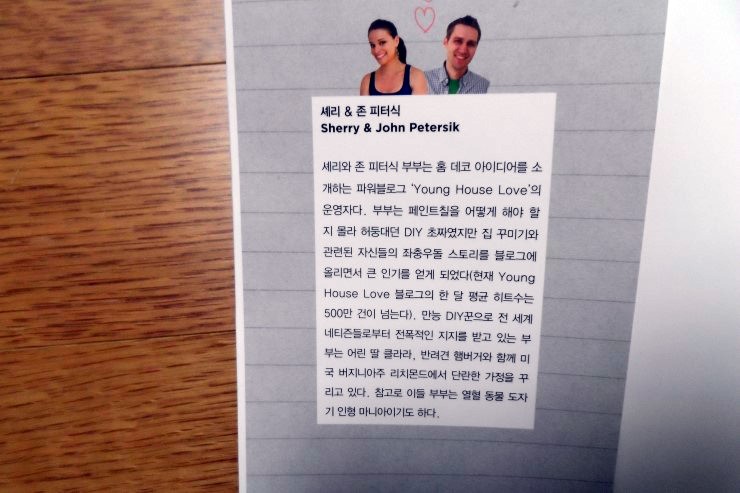 셰리 & 존 피터식
Sherry & John Petersik
셰리와 존 피터식 부부는 홈 데코 아이디어를 소
개하는 파워블로그 ‘Young House Love’의
운영자다. 부부는 페인트칠을 어떻게 해야 할
지 몰라 허둥대던 DIY 초짜였지만 집 꾸미기와
관련된 자신들의 좌충우돌 스토리를 블로그에
올리면서 큰 인기를 얻게 되었다(현재 Young
House Love 블로그의 한 달 평균 히트수는
500만 건이 넘는다). 만능 DIY꾼으로 전 세계
네티즌들로부터 전폭적인 지지를 받고 있는 부
부는 어린 딸 클라라, 반려견 햄버거와 함께 미
국 버지니아주 리치몬드에서 단란한 가정을 꾸
리고 있다. 참고로 이들 부부는 열혈 동물 도자
기 인형 마니아이기도 하다.